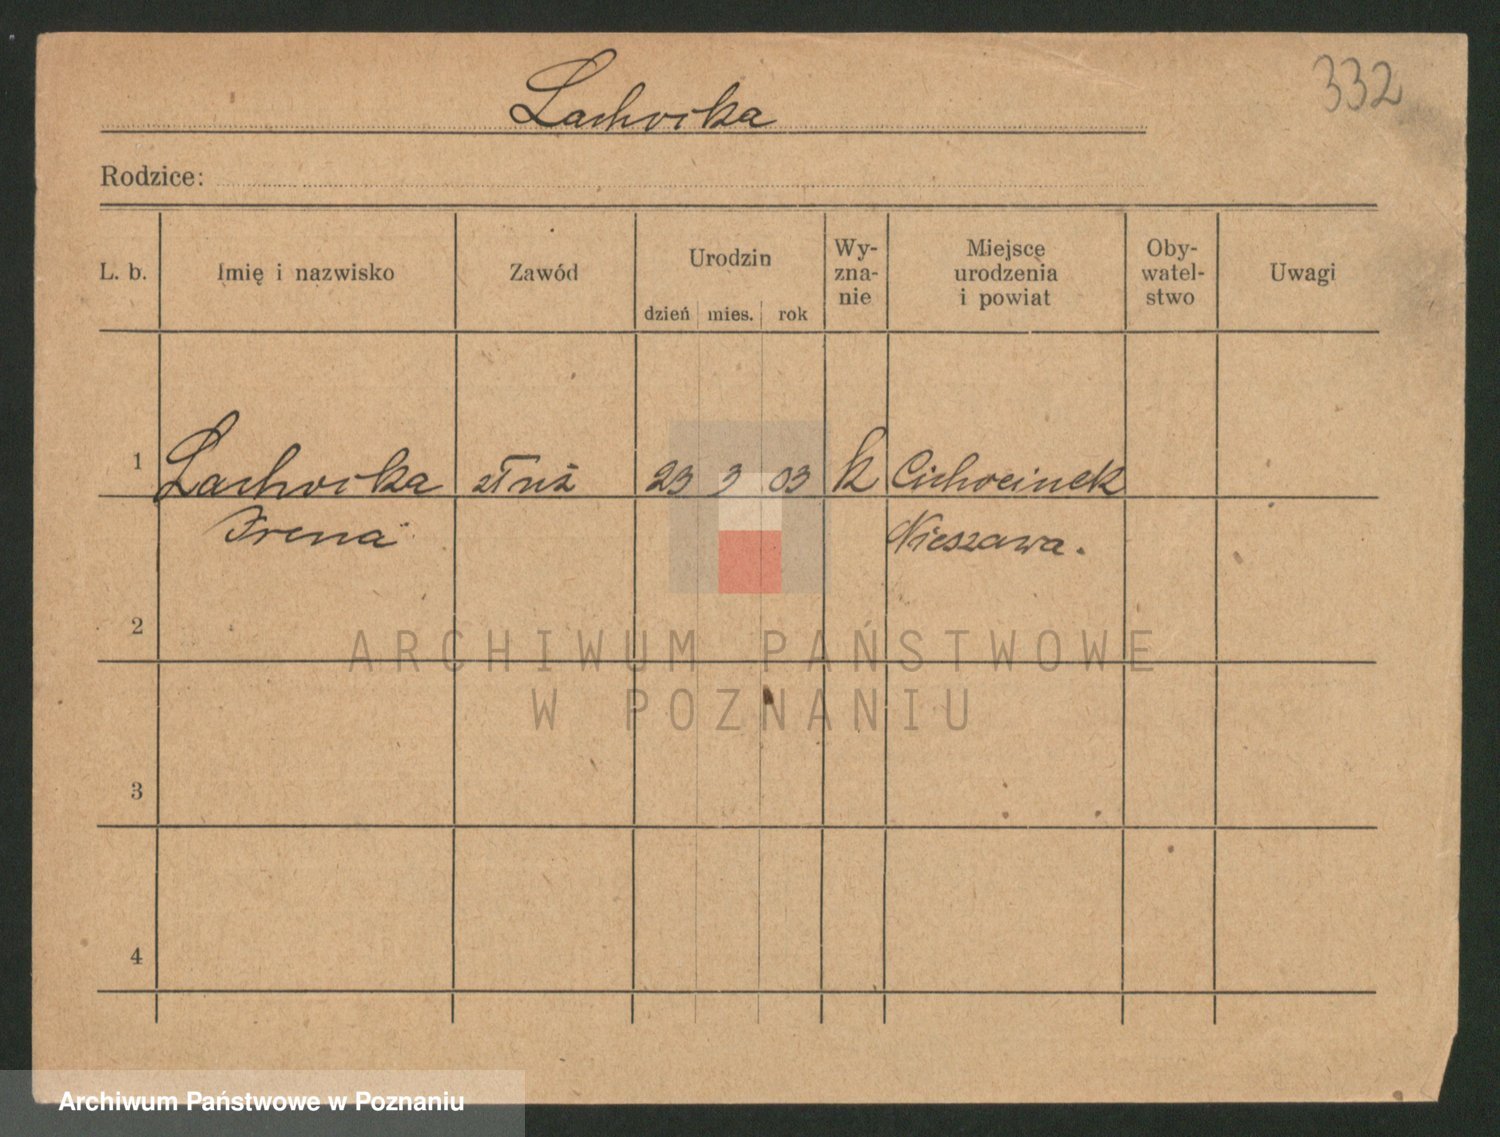 332
Lachvika
Rodzice:
L. b.
Imię i nazwisko
Zawód
Urodzin
dzień mies. rok
Wy-
zna-
nie
Miejsce
urodzenia
i powiat
Oby-
watel-
stwo
Uwagi
1 Lachvika 23 3 03 k Cichocinek
Irena Nieszawa.
2
3
4
ARCHIWUM PAŃSTWOWE
W POZNANIU
Archiwum Państwowe w Poznaniu